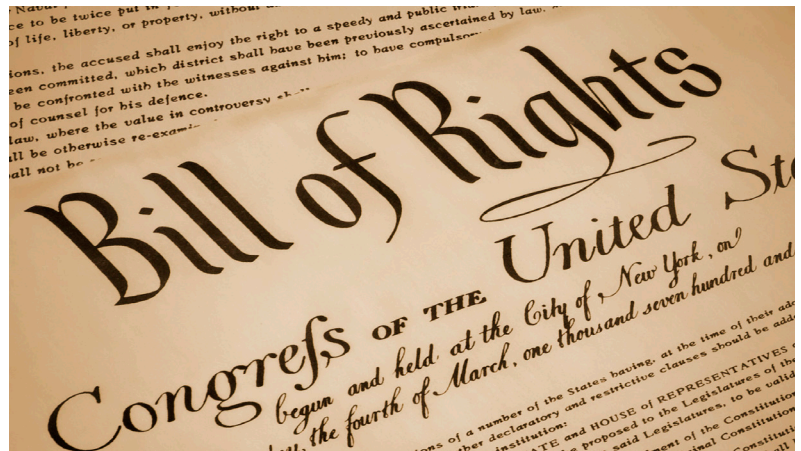 Naval
ce to be twice put in
of life, liberty, or property, without
ions, the accused shall enjoy the right to a speedy and public
een committed, which district shall have been previously ascertained by law,
be confronted with the witnesses against him; to have compulsory
of counsel for his defence.
law, where the value in controversy shall
all be otherwise re-exami
all not be
Bill of Rights
Congreſs OF THE United Sta
begun and held at the City of New York, on
the fourth of March, one thousand seven hundred and
ions of a number of the States having, at the time of their ado
ther declaratory and restrictive clauses should be adde
institution:
ATE and HOUSE of REPRESENTATIVES
be proposed to the Legislatures of the
said Legislatures, to be valid
ment of the Constitution
inal Constitution
Constitution